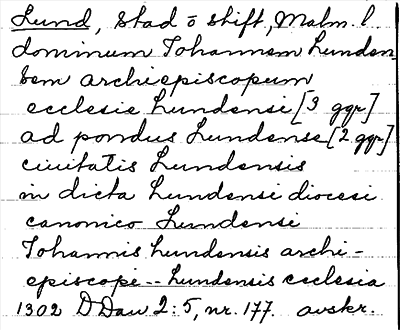 Lund, stad o stift, Malm. l.
dominum Johannem Lunden
sem archiepiscopum
ecclesie Lundensi [3 ggr]
ad pondus Lundense [2 ggr]
ciuitatis Lundensis
in dicta Lundensi diocesi
canonico Lundensi
Johannis Lundensis archi-
episcopi -- Lundensis ecclesia
1302 DDan 2:5, nr. 177. avskr.